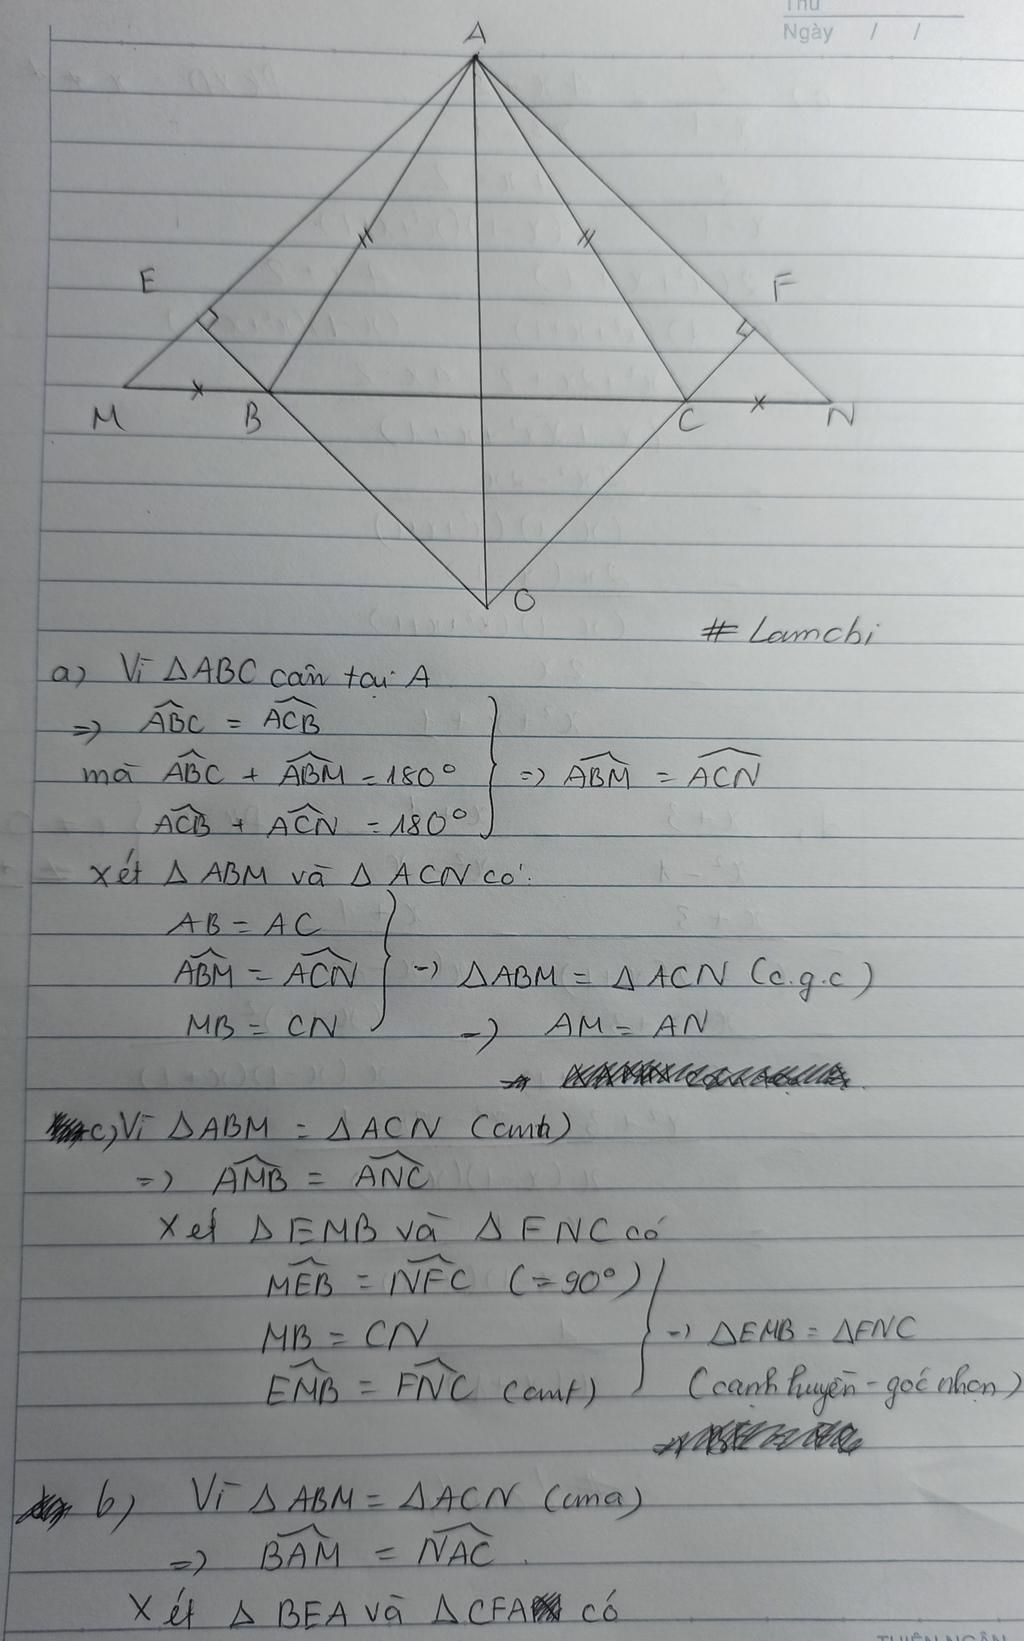 Thứ
Ngày / /
A
E
F
M
B
C
N
O
# Lamchi
a) Vì ΔABC cân tại A
=> \widehat{ABC} = \widehat{ACB}
mà \widehat{ABC} + \widehat{ABM} = 180° => \widehat{ABM} = \widehat{ACN}
\widehat{ACB} + \widehat{ACN} = 180°
Xét Δ ABM và Δ ACN có:
AB = AC
\widehat{ABM} = \widehat{ACN} => ΔABM = Δ ACN (c.g.c)
MB = CN => AM = AN
c) Vì ΔABM = ΔACN (cmt)
=> \widehat{AMB} = \widehat{ANC}
Xét Δ EMB và Δ FNC có
\widehat{MEB} = \widehat{NFC} (= 90°)
MB = CN => ΔEMB = ΔFNC
\widehat{EMB} = \widehat{FNC} (cmt) (cạnh huyền - góc nhọn)
b) Vì ΔABM = ΔACN (cma)
=> \widehat{BAM} = \widehat{NAC}.
Xét Δ BEA và ΔCFA có